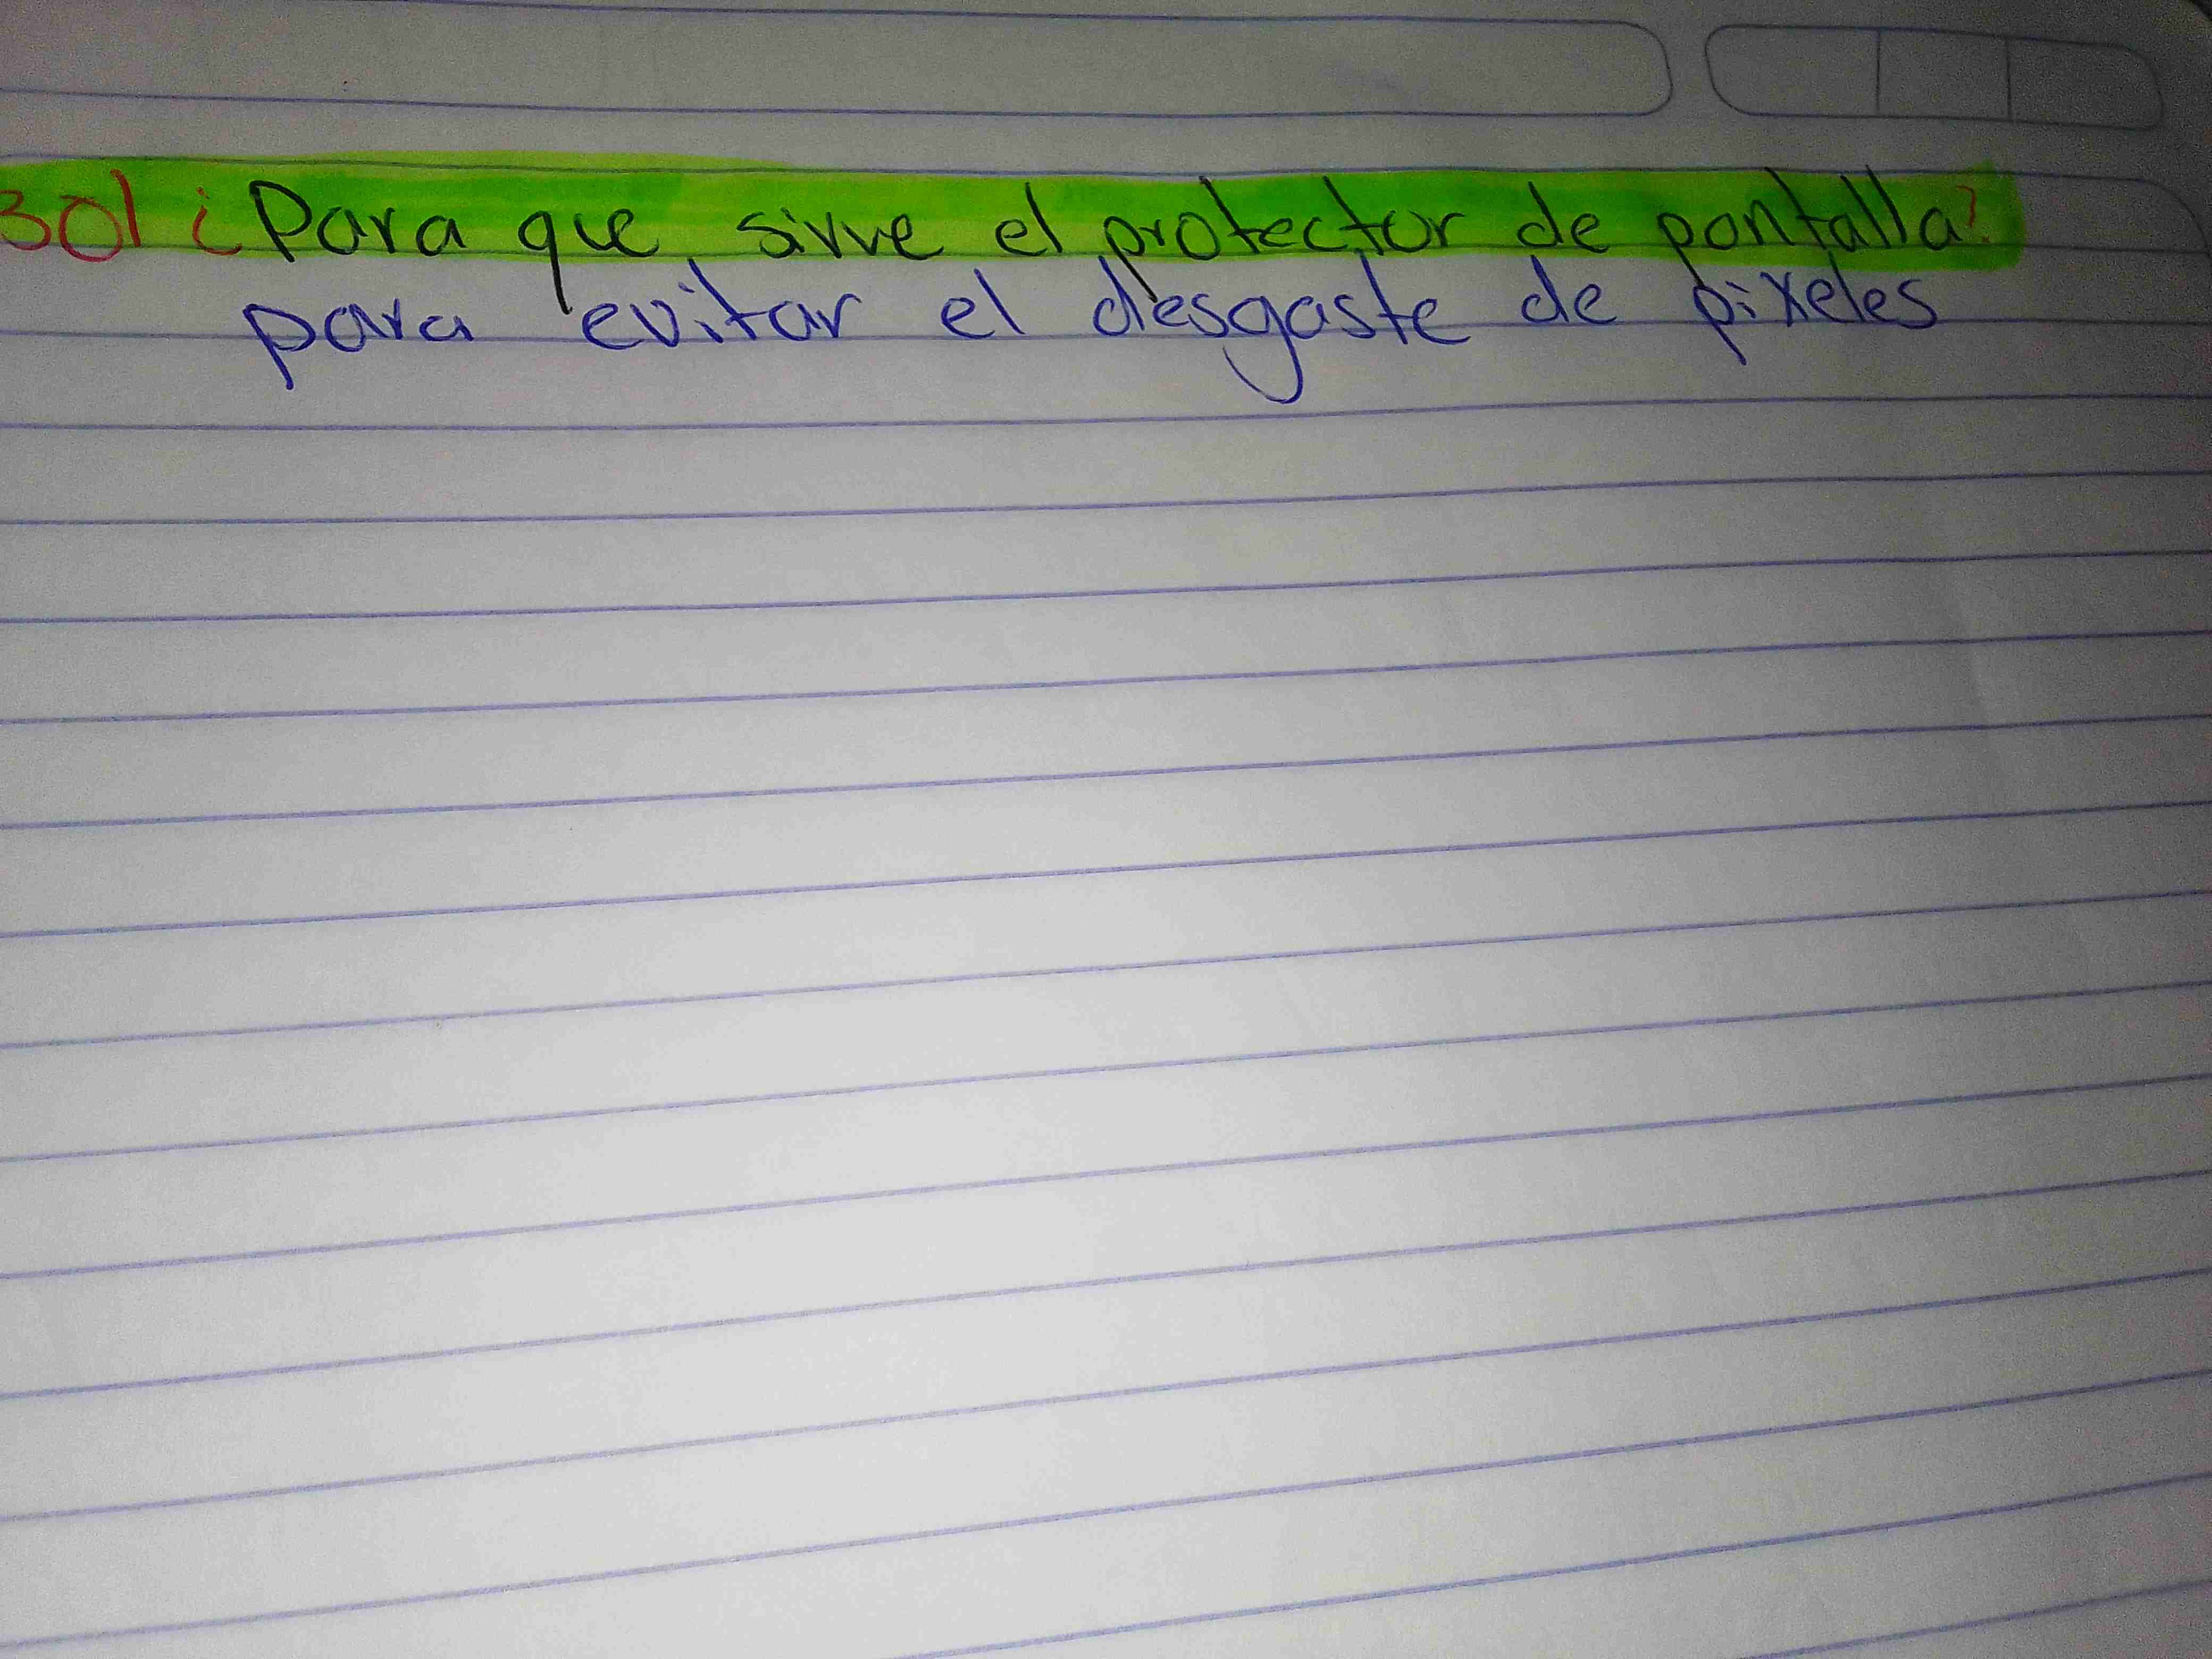 30) ¿Para que sirve el protector de pantalla?
para evitar el desgaste de pixeles